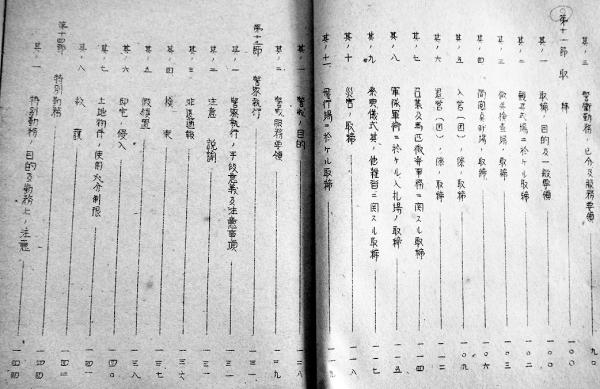 其ノ三 警衛勤務ノ区分及服務要領 九〇
第十一節 取締
其ノ一 取締ノ目的及一般要領 一〇〇
其ノ二 観兵式場ニ於ケル取締 一〇二
其ノ三 徴兵検査場ノ取締 一〇三
其ノ四 簡閲点呼場ノ取締 一〇六
其ノ五 入営(団)ノ際ノ取締 一〇九
其ノ六 退営(団)ノ際ノ取締
其ノ七 召集及馬匹徴発事務ニ関スル取締 一一四
其ノ八 軍隊軍衙ニ於ケル入札場ノ取締
其ノ九 祭典儀式其ノ他雑沓ニ関スル取締 一一七
其ノ十 災害ノ取締
其ノ十一 飛行場ニ於ケル取締 一一九
其ノ一 警戒ノ目的 一二八
其ノ二 警戒服務要領 一二九
第十三節 警察執行
其ノ一 警察執行ノ手段意義及注意事項 一三一
其ノ二 注意 説諭
其ノ三 非違通報 一三六
其ノ四 検束
其ノ五 仮領置 一三七
其ノ六 邸宅ノ侵入 一三八
其ノ七 土地物件ノ使用火介制限 一四〇
其ノ八 救護 一四一
第十四節 特別勤務
其ノ一 特別勤務ノ目的及勤務上ノ注意 一四四